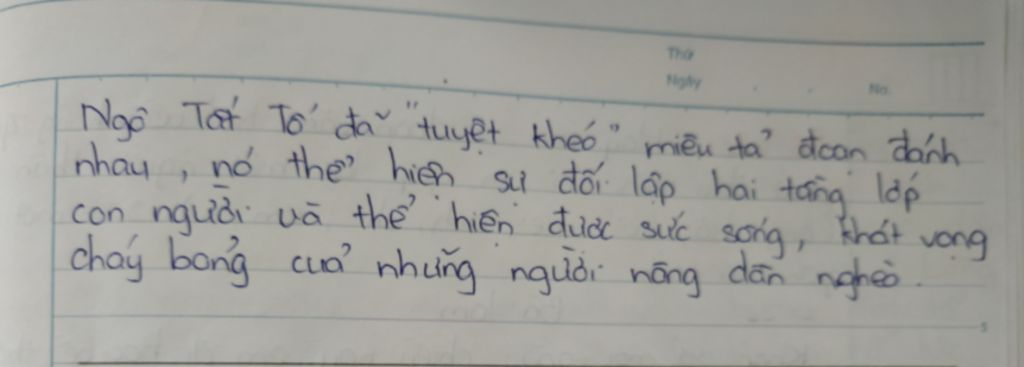 Thứ
Ngày No.
Ngô Tất Tố đã "tuyệt khéo" miêu tả đoạn đánh
nhau, nó thể hiện sự đối lập hai tầng lớp
con người và thể hiện được sức sống, khát vọng
cháy bỏng của những người nông dân nghèo.
5